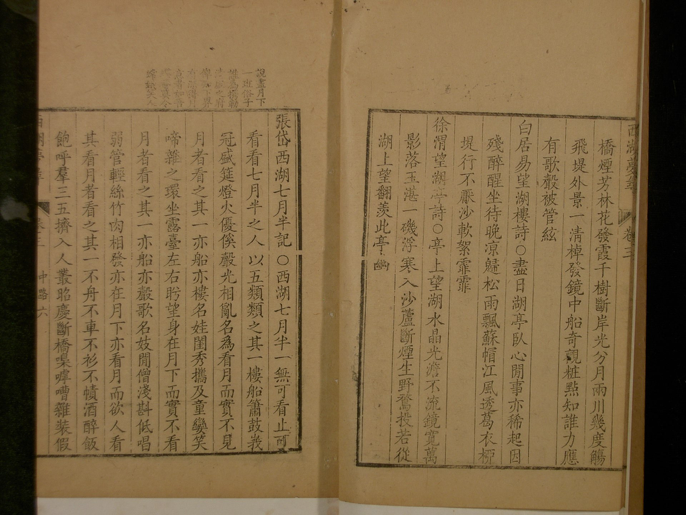 西湖夢尋 卷三
橋煙芳林花發霞千樹斷岸光分月兩川幾度觴
飛堤外景一清棹發鏡中船奇覯樁點知誰力應
有歌聲被管絃
白居易望湖樓詩〇盡日湖亭臥心閒事亦稀起因
殘醉醒坐待晚涼歸松雨飄蘇帽江風透葛衣柳
堤行不厭沙軟絮霏霏
徐渭望湖亭詩〇亭上望湖水晶光澹不流鏡寬萬
影落玉湛一磯浮寒入沙蘆斷煙生野鶩投若從
湖上望翻羨此亭幽
張岱西湖七月半記〇西湖七月半一無可看止可
看看七月半之人以五類類之其一樓船簫鼓峩
冠盛筵燈火優傒聲光相亂名為看月而實不見
月者看之其一亦船亦樓名娃閨秀攜及童孌笑
啼雜之環坐露臺左右盻望身在月下而實不看
月者看之其一亦船亦聲歌名妓閒僧淺斟低唱
弱管輕絲竹肉相發亦在月下亦看月而欲人看
其看月者看之其一不舟不車不衫不幘酒醉飯
飽呼羣三五擠入人叢昭慶斷橋嘄嘑嘈雜裝假
中路 六
説盡月下
一班俗子